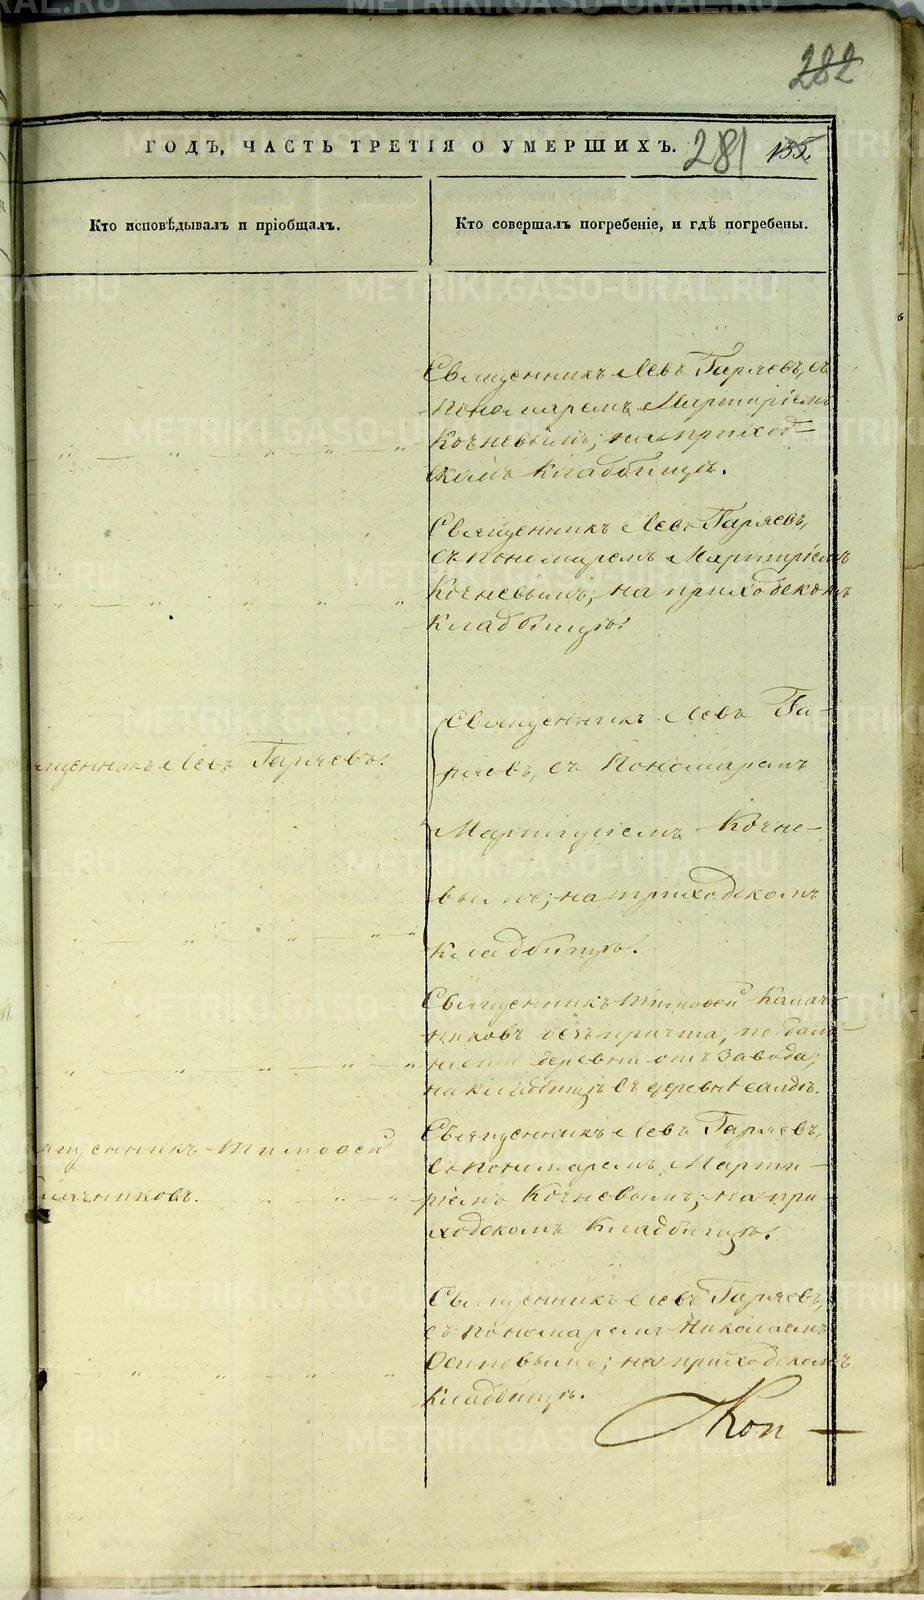 282
ГОДЪ, ЧАСТЬ ТРЕТІЯ О УМЕРШИХЪ. 281 135
Кто исповѣдывалъ и пріобщалъ.
Кто совершалъ погребеніе, и гдѣ погребены.
Священникъ Левъ Гаряевъ, съ
Пономаремъ Мартиріемъ
Кочневымъ; на приход-
скомъ кладбищѣ.
Священникъ Левъ Гаряевъ,
съ Пономаремъ Мартиріемъ
Кочневымъ; на приходскомъ
кладбищѣ.
щенникъ Левъ Гаряевъ.
Священникъ Левъ Га-
ряевъ, съ Пономаремъ
Мартиріемъ Кочне-
вымъ; на приходскомъ
кладбищѣ.
Священникъ Тимоѳей Калач-
никовъ безъ причта, по даль-
ности деревни отъ завода;
на кладбищѣ въ деревнѣ
щенникъ Тимоѳей
лачниковъ.
Священникъ Левъ Гаряевъ,
съ Пономаремъ Марти-
ріемъ Кочневымъ; на при-
ходскомъ кладбищѣ.
Священникъ Левъ Гаряевъ,
съ Пономаремъ Николаемъ
Осиповымъ; на приходскомъ
кладбищѣ.
Коп
METRIKI.GASO-URAL.RU